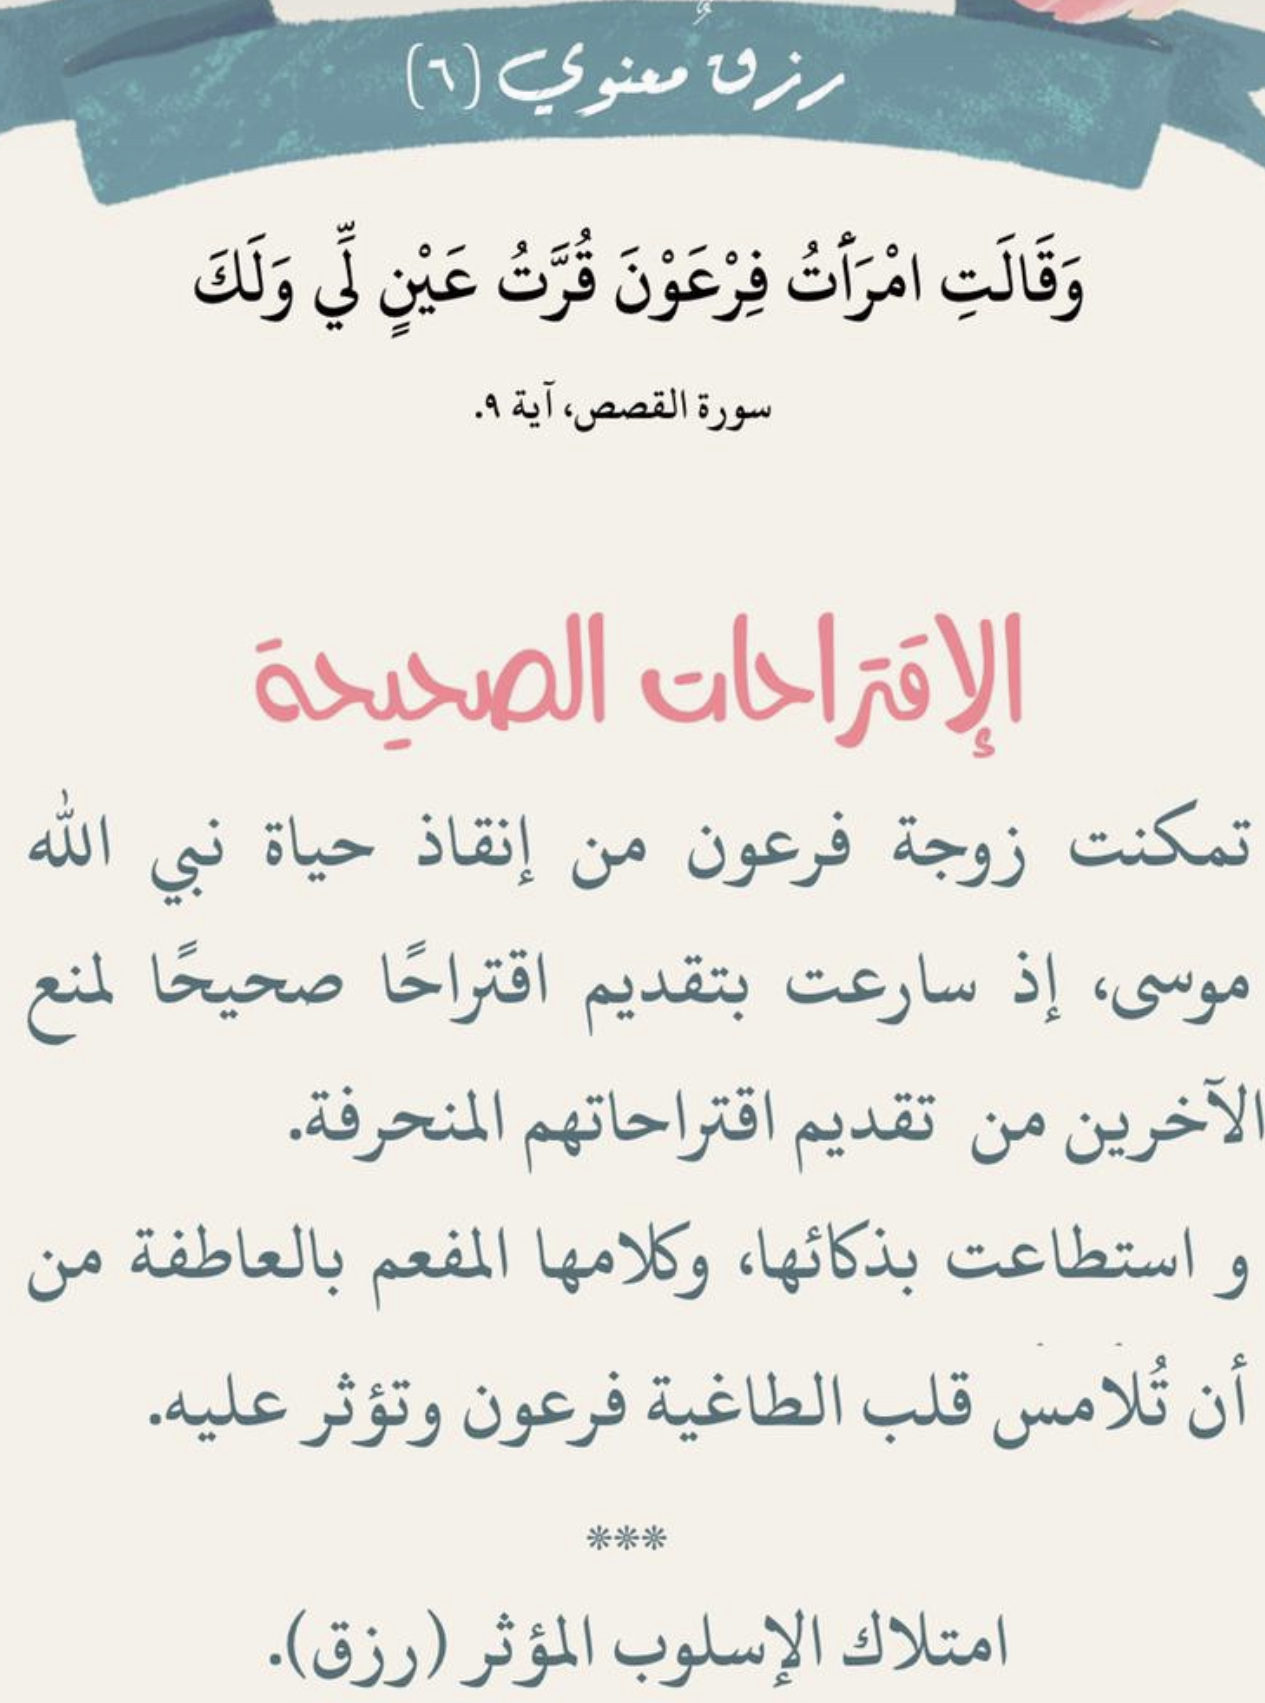 رزقٌ معنوي (٦)
وَقَالَتِ امْرَأَتُ فِرْعَوْنَ قُرَّتُ عَيْنٍ لِّي وَلَكَ
سورة القصص، آية ٩.
الإقتراحات الصحيحة
تمكنت زوجة فرعون من إنقاذ حياة نبي الله
موسى، إذ سارعت بتقديم اقتراحًا صحيحًا لمنع
الآخرين من تقديم اقتراحاتهم المنحرفة.
و استطاعت بذكائها، وكلامها المفعم بالعاطفة من
أن تُلامس قلب الطاغية فرعون وتؤثر عليه.
***
امتلاك الإسلوب المؤثر (رزق).